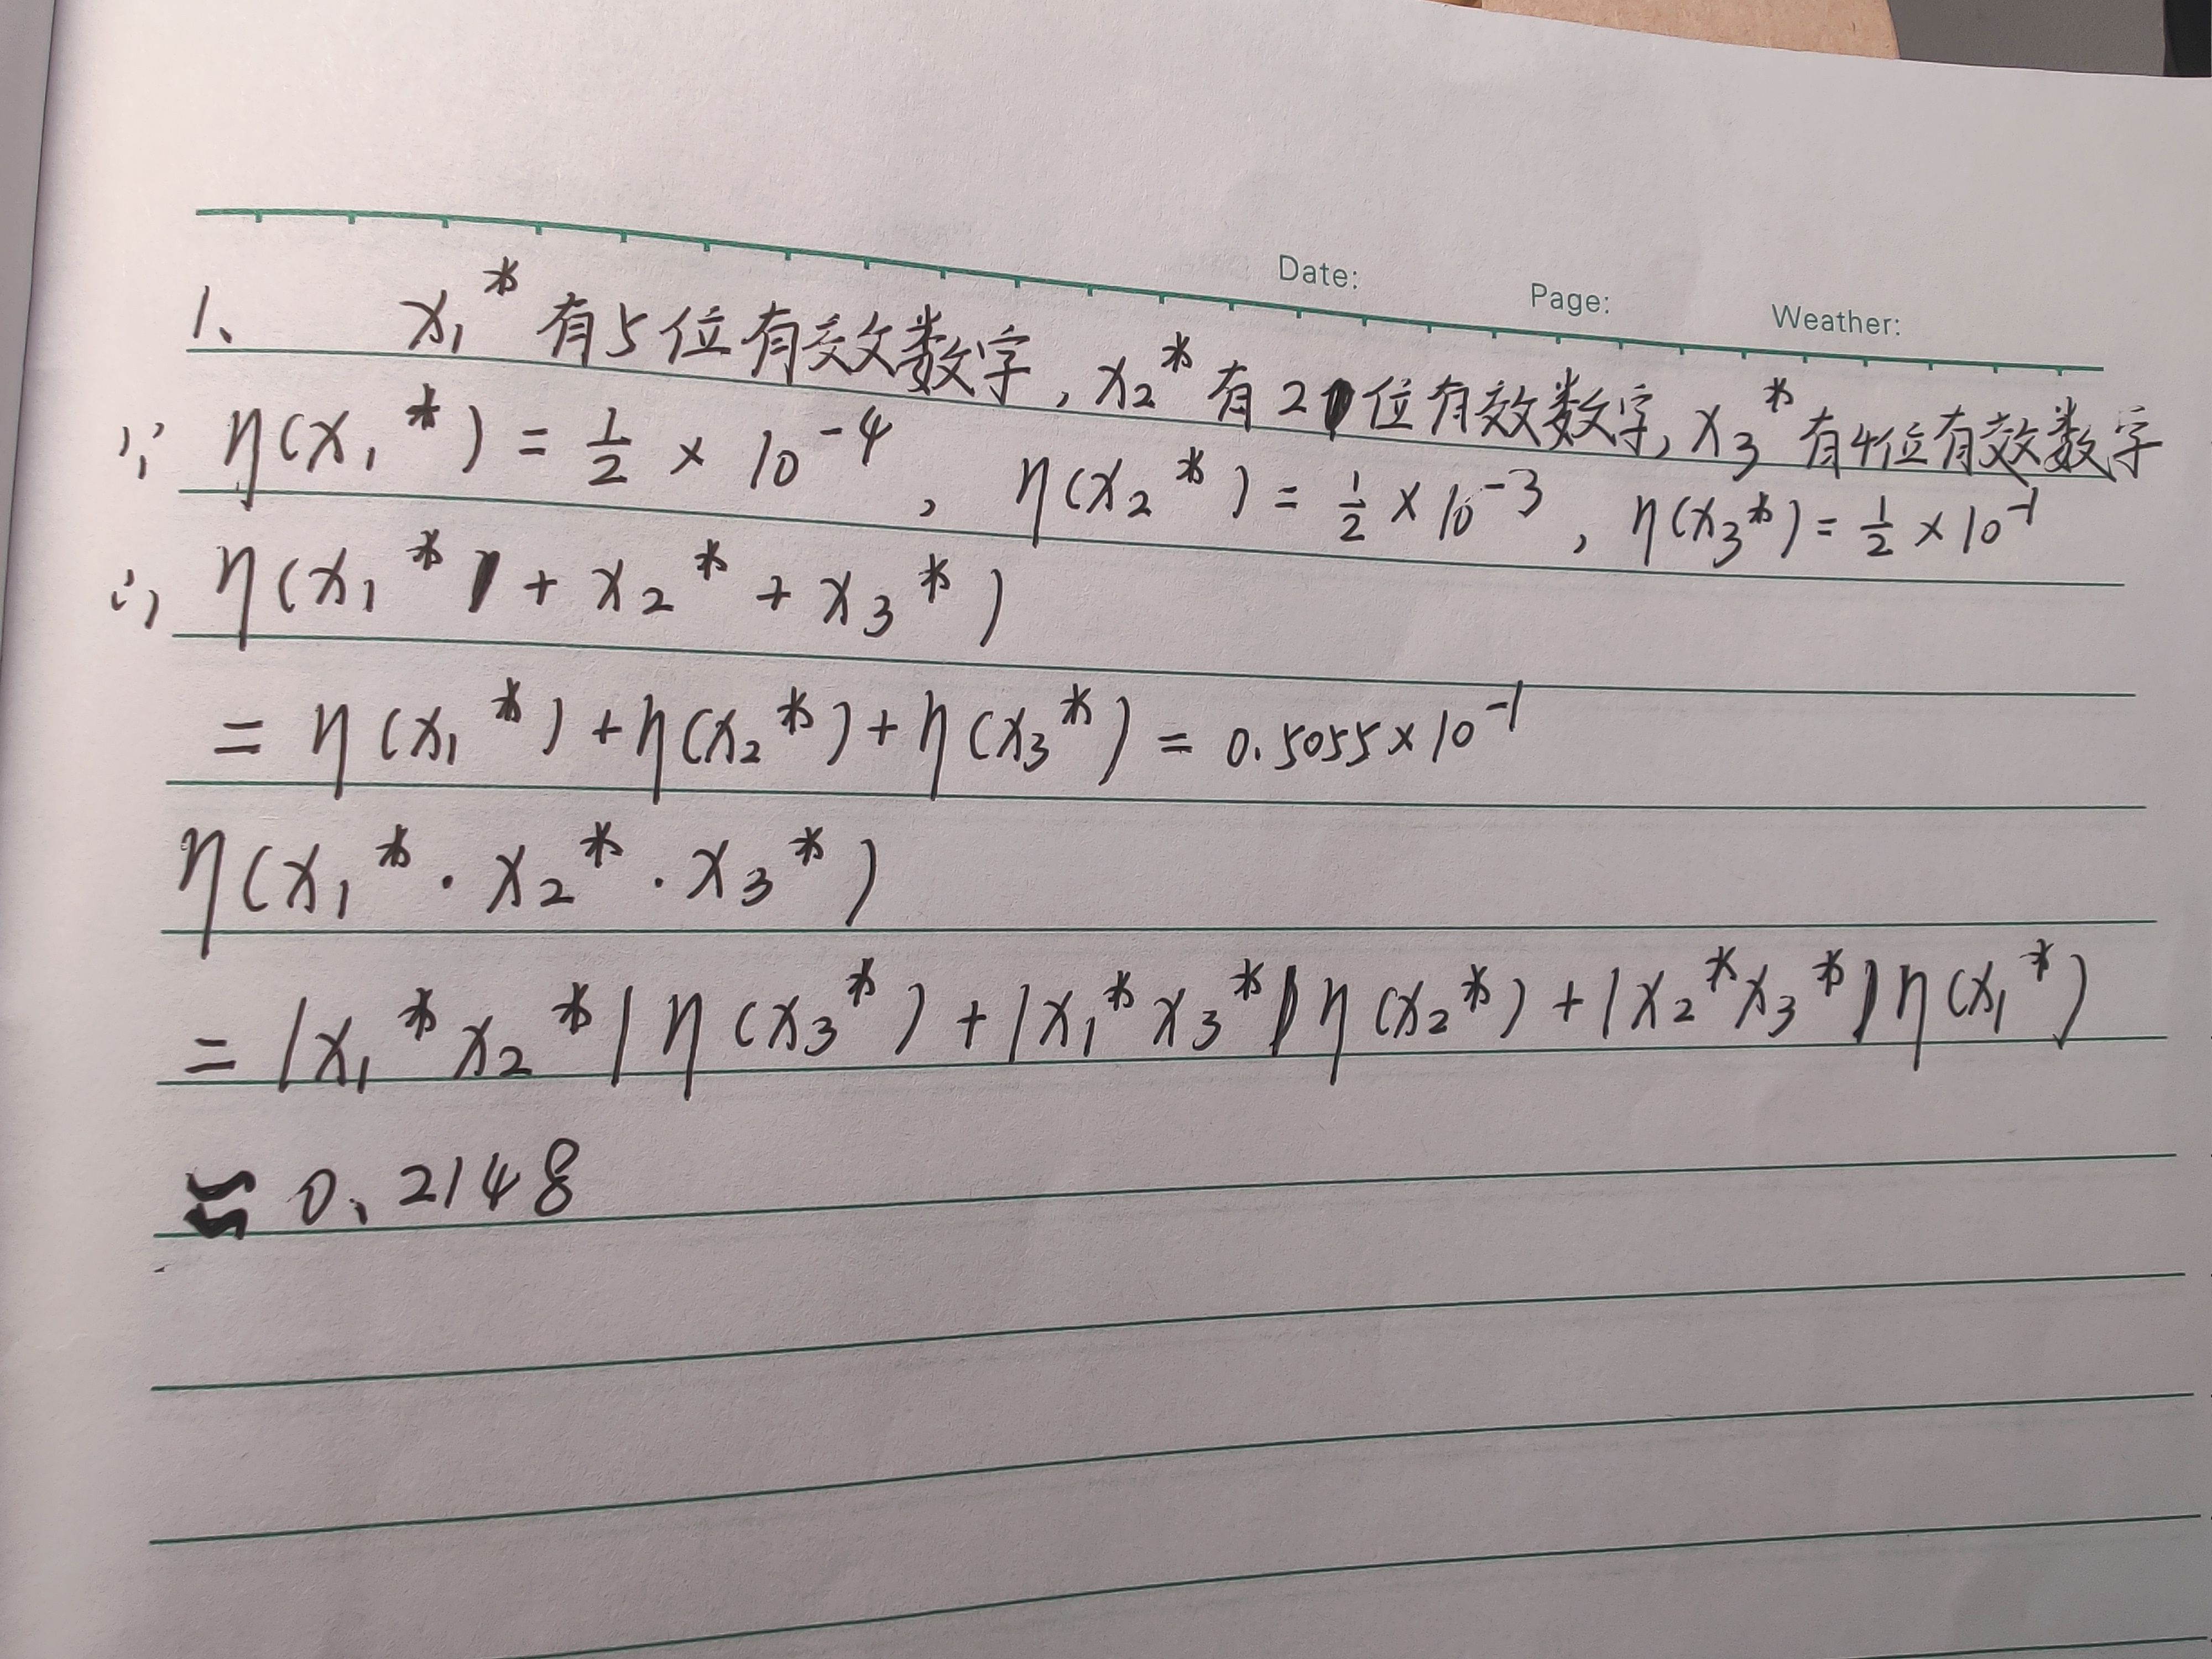 Date: Page: Weather:
1、 x₁* 有5位有效数字, x₂* 有2位有效数字, x₃* 有4位有效数字
∵ η(x₁*) = 1/2 × 10⁻⁴, η(x₂*) = 1/2 × 10⁻³, η(x₃*) = 1/2 × 10⁻¹
∴ η(x₁* + x₂* + x₃*)
= η(x₁*) + η(x₂*) + η(x₃*) = 0.5055×10⁻¹
η(x₁* · x₂* · x₃*)
= |x₁* x₂*| η(x₃*) + |x₁* x₃*| η(x₂*) + |x₂* x₃*| η(x₁*)
≈ 0.2148